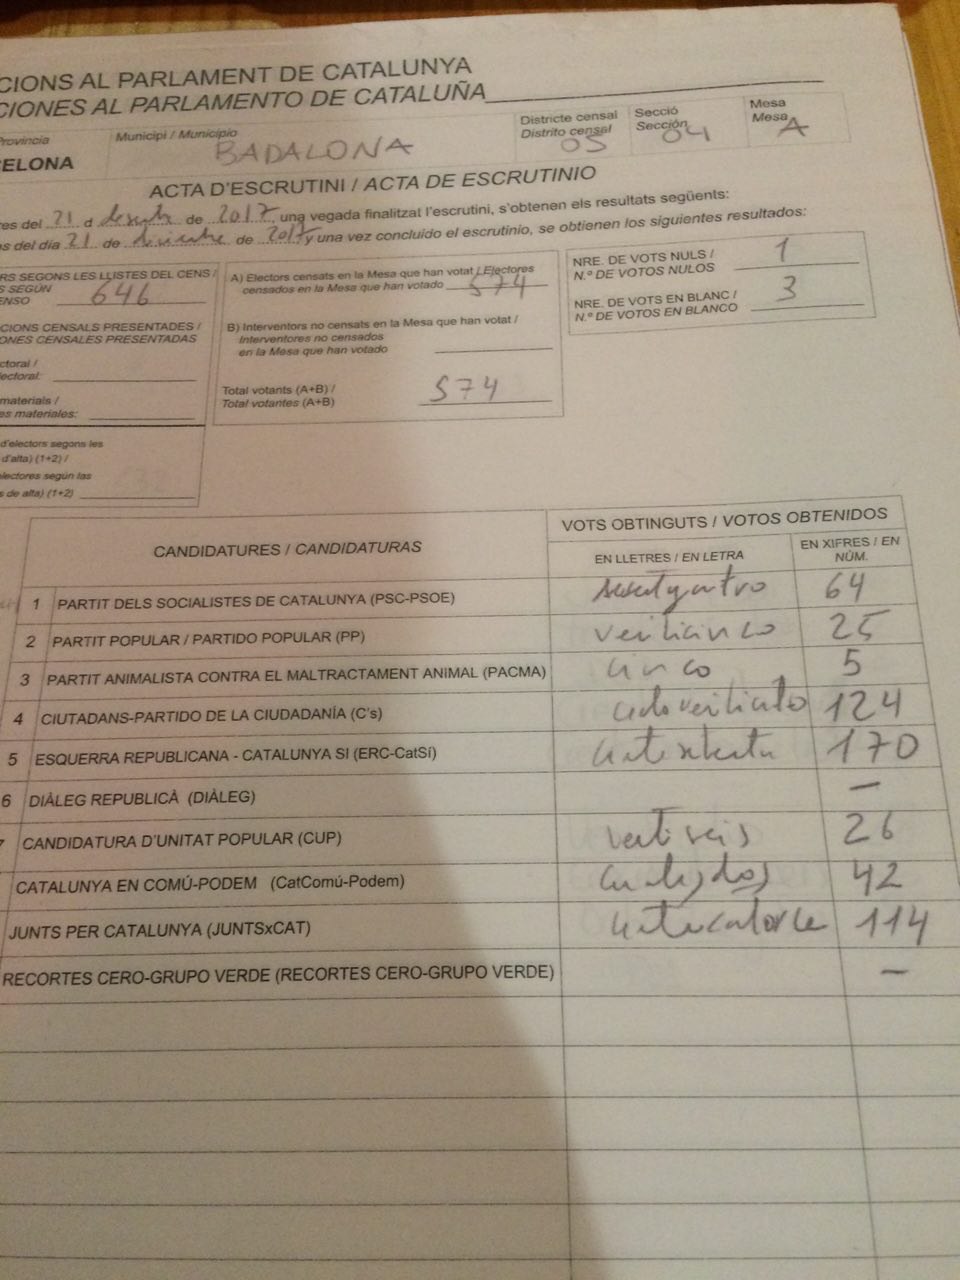 CIONS AL PARLAMENT DE CATALUNYA
CIONES AL PARLAMENTO DE CATALUÑA
Provincia
ELONA
Municipi / Municipio
BADALONA
Districte censal
Distrito censal
05
Secció
Sección
04
Mesa
Mesa
A
ACTA D'ESCRUTINI / ACTA DE ESCRUTINIO
res del 21 d de 2017, una vegada finalitzat l'escrutini, s'obtenen els resultats següents:
s del día 21 de diciembre de 2017 y una vez concluido el escrutinio, se obtienen los siguientes resultados:
RS SEGONS LES LLISTES DEL CENS /
S SEGÚN
ENSO 646
CIONS CENSALS PRESENTADES /
ONES CENSALES PRESENTADAS
ctoral /
lectoral:
materials /
es materiales:
d'electors segons les
d'alta) (1+2) /
lectores según las
s de alta) (1+2)
A) Electors censats en la Mesa que han votat / Electores
censados en la Mesa que han votado 574
B) Interventors no censats en la Mesa que han votat /
Interventores no censados
en la Mesa que han votado
Total votants (A+B) /
Total votantes (A+B) 574
NRE. DE VOTS NULS /
N.º DE VOTOS NULOS 1
NRE. DE VOTS EN BLANC /
N.º DE VOTOS EN BLANCO 3
CANDIDATURES / CANDIDATURAS
VOTS OBTINGUTS / VOTOS OBTENIDOS
EN LLETRES / EN LETRA
EN XIFRES / EN
NÚM.
1 PARTIT DELS SOCIALISTES DE CATALUNYA (PSC-PSOE) 64
2 PARTIT POPULAR / PARTIDO POPULAR (PP) veinticinco 25
3 PARTIT ANIMALISTA CONTRA EL MALTRACTAMENT ANIMAL (PACMA) cinco 5
4 CIUTADANS-PARTIDO DE LA CIUDADANÍA (C's) 124
5 ESQUERRA REPUBLICANA - CATALUNYA SI (ERC-CatSí) 170
6 DIÀLEG REPUBLICÀ (DIÀLEG) —
7 CANDIDATURA D'UNITAT POPULAR (CUP) 26
CATALUNYA EN COMÚ-PODEM (CatComú-Podem) 42
JUNTS PER CATALUNYA (JUNTSxCAT) 114
RECORTES CERO-GRUPO VERDE (RECORTES CERO-GRUPO VERDE) —